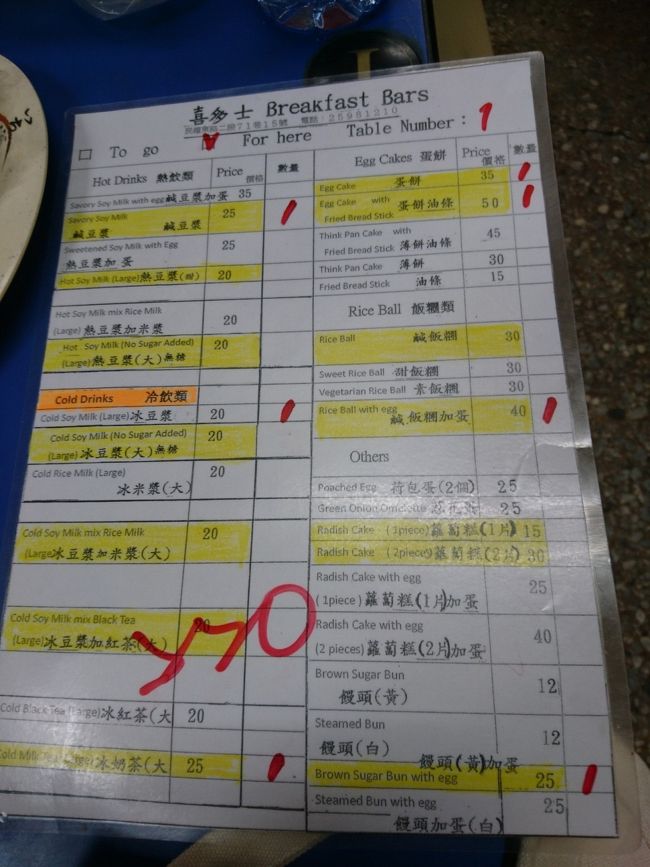 喜多士 Breakfast Bars
民權東路二段71巷15號 電話:25981210
To go For here Table Number: 1
Hot Drinks 熱飲類 Price 價格 數量
Savory Soy Milk with egg 鹹豆漿加蛋 35
Savory Soy Milk
鹹豆漿 鹹豆漿 25
Sweetened Soy Milk with Egg
熱豆漿加蛋 25
Hot Soy Milk (Large) 熱豆漿(甜) 20
Hot Soy Milk mix Rice Milk
(Large) 熱豆漿加米漿 20
Hot Soy Milk (No Sugar Added)
(Large) 熱豆漿(大)無糖 20
Cold Drinks 冷飲類
Cold Soy Milk (Large) 冰豆漿 20
Cold Soy Milk (No Sugar Added)
(Large) 冰豆漿(大)無糖 20
Cold Rice Milk (Large)
冰米漿(大) 20
Cold Soy Milk mix Rice Milk
(Large) 冰豆漿加米漿(大) 20
Cold Soy Milk mix Black Tea
(Large) 冰豆漿加紅茶(大) 20
Cold Black Tea (Large) 冰紅茶(大 20
Cold Milk 冰奶茶(大 25
Egg Cakes 蛋餅 Price 價格 數量
Egg Cake 蛋餅 35
Egg Cake with
Fried Bread Stick 蛋餅油條 50
Think Pan Cake with
Fried Bread Stick 薄餅油條 45
Think Pan Cake 薄餅 30
Fried Bread Stick 油條 15
Rice Ball 飯糰類
Rice Ball 鹹飯糰 30
Sweet Rice Ball 甜飯糰 30
Vegetarian Rice Ball 素飯糰 30
Rice Ball with egg
鹹飯糰加蛋 40
Others
Poached Egg 荷包蛋(2個) 25
Green Onion Omelette 蔥花蛋 25
Radish Cake (1piece) 蘿蔔糕(1片) 15
Radish Cake (2piece) 蘿蔔糕(2片) 30
Radish Cake with egg
(1piece) 蘿蔔糕(1片)加蛋 25
Radish Cake with egg
(2 pieces) 蘿蔔糕(2片)加蛋 40
Brown Sugar Bun
饅頭(黃) 12
Steamed Bun
饅頭(白) 12
饅頭(黃)加蛋
Brown Sugar Bun with egg 25
Steamed Bun with egg
饅頭加蛋(白) 25